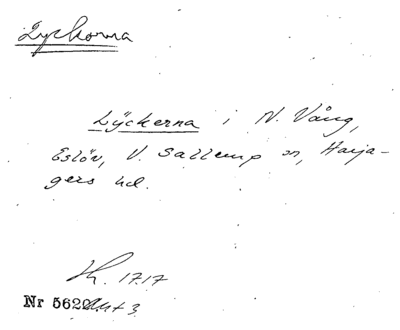 Lyckorna
Lyckerna i N. Vång,
Eslöv, V. Sallerup sn, Harja-
gers hd.
Lk. 1717
Nr 562 Akt 3